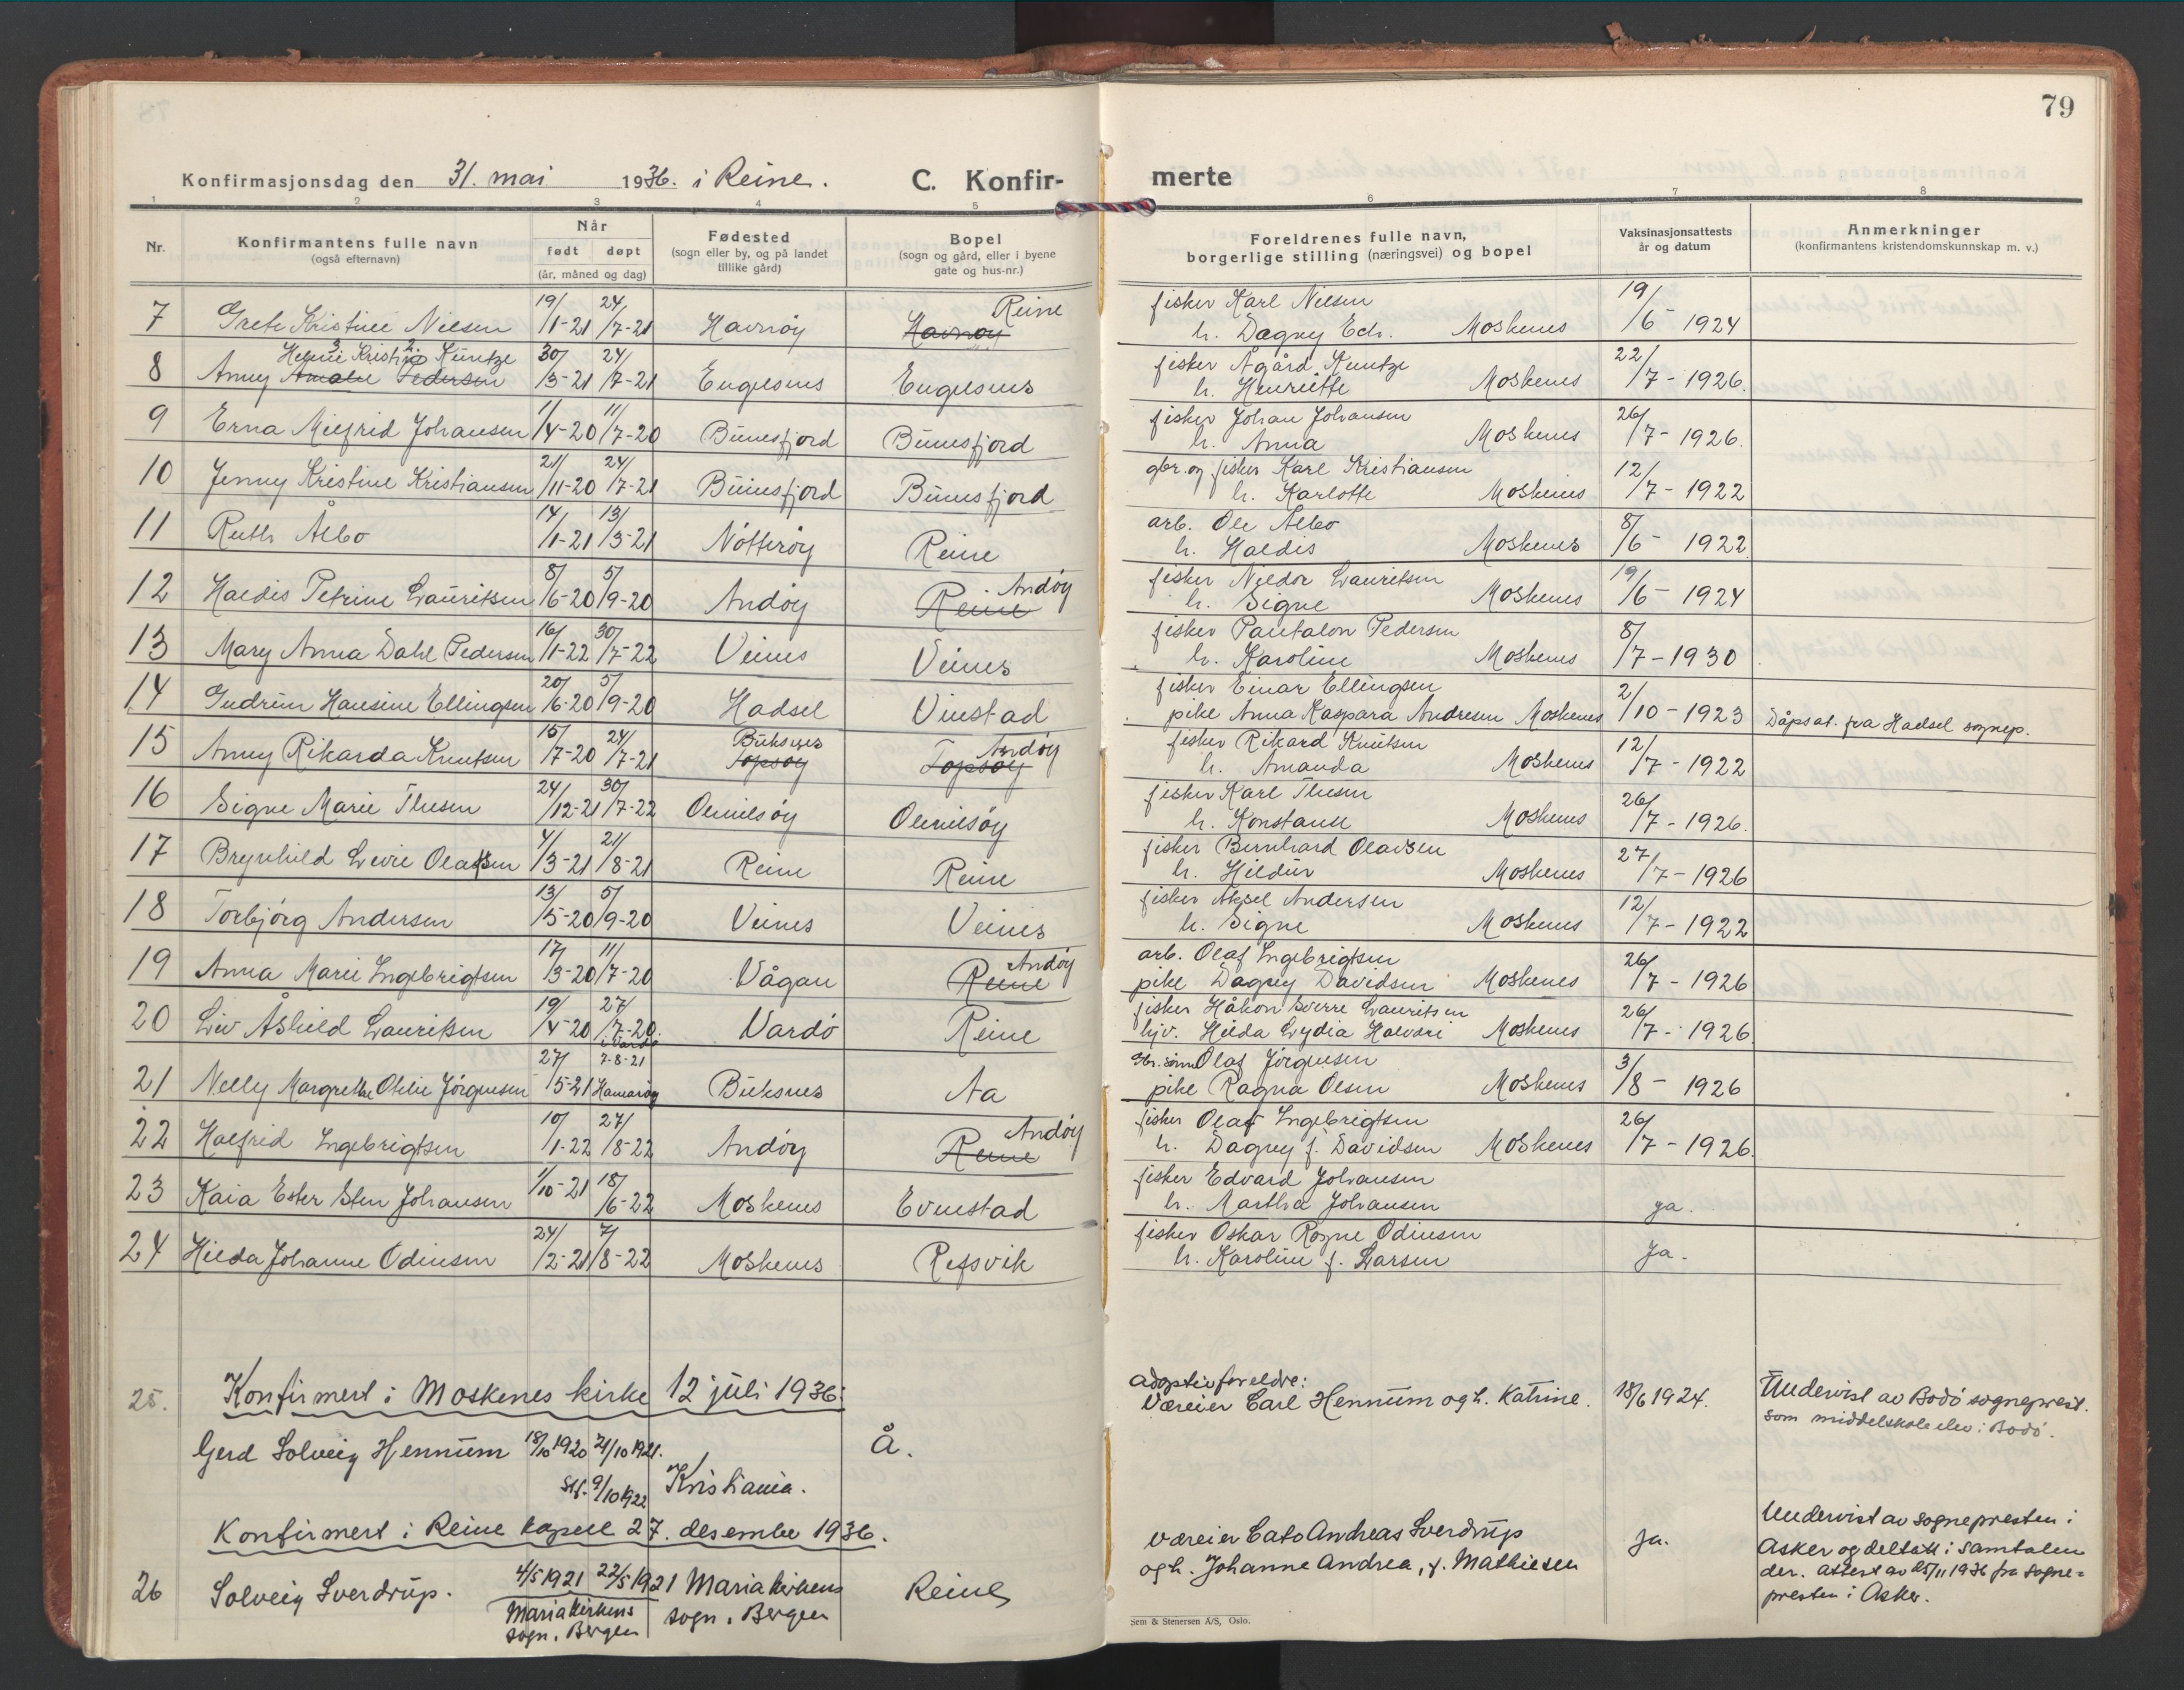 79
Konfirmasjonsdag den 31. mai 1936. i Reine. C. Konfir- merte
1 2 3 4 5 6 7 8
Nr. Konfirmantens fulle navn (også efternavn) Når født døpt (år, måned og dag) Fødested (sogn eller by, og på landet tillike gård) Bopel (sogn og gård, eller i byene gate og hus-nr.) Foreldrenes fulle navn, borgerlige stilling (næringsvei) og bopel Vaksinasjonsattests år og datum Anmerkninger (konfirmantens kristendomskunnskap m. v.)
7 Grete Kristine Nilsen 19/1-21 24/7-21 Havnøy Havnøy Reine fisker Karl Nilsen
h. Dagny Edr. Moskenes 19/6 1924
8 Anny Amalie Pedersen Henrie Kristine Kuntze 30/3-21 24/7-21 Engelsnes Engelsnes fisker Ågård Kuntze
h. Henriette Moskenes 22/7-1926.
9 Erna Milfrid Johansen 1/4-20 11/7-20 Bunesfjord Bunesfjord fisker Johan Johansen
h. Anna Moskenes 26/7-1926.
10 Jenny Kristine Kristiansen 21/11-20 24/7-21 Bunesfjord Bunesfjord gbr. og fisker Karl Kristiansen
h. Karlotte Moskenes 12/7-1922
11 Ruth Ålbo 14/1-21 13/3-21 Nøtterøy Reine arb. Ole Ålbo
h. Haldis Moskenes 8/6-1922.
12 Haldis Petrine Lauritsen 8/6-20 5/9-20 Andøy Reine Andøy fisker Nildor Lauritsen
h. Signe Moskenes 19/6-1924
13 Mary Anna Dahl Pedersen 16/1-22 30/7-22 Veines Veines fisker Pantalon Pedersen
h. Karoline Moskenes 8/7-1930
14 Gudrun Hansine Ellingsen 20/6-20 5/9-20 Hadsel Vinstad fisker Einar Ellingsen
pike Anna Kaspara Andresen Moskenes 2/10-1923 Dåpsat. fra Hadsel sognep.
15 Anny Rikarda Knutsen 15/7-20 24/7-21 Topsøy Buksnes Topsøy Andøy fisker Rikard Knutsen
h. Amanda Moskenes 12/7-1922
16 Signe Marie Thesen 24/12-21 30/7-22 Olenilsøy Olenilsøy fisker Karl Thesen
h. Konstanse Moskenes 26/7-1926.
17 Brynhild Livie Olavsen 4/3-21 21/8-21 Reine Reine fisker Bernhard Olavsen
h. Hildur Moskenes 27/7-1926
18 Torbjørg Andersen 13/5-20 5/9-20 Veines Veines fisker Aksel Andersen
h. Signe Moskenes 12/7-1922
19 Anna Marie Ingebrigtsen 17/3-20 11/7-20 Vågan Reine Andøy arb. Olaf Ingebrigtsen
pike Dagny Davidsen Moskenes 26/7-1926
20 Liv Åshild Lauritsen 19/4-20 27/7-20. i Vardø Vardø Reine fisker Håkon Sverre Lauritsen
hjv. Hilda Lydia Halvari Moskenes 26/7-1926.
21 Nelly Margrethe Otilie Jørgensen 27/5-21 7-8-21 Hamarøy Buksnes Aa Gbr. sønn Olaf Jørgensen
pike Ragna Olsen Moskenes 3/8-1926
22 Halfrid Ingebrigtsen 10/1-22 27/8-22 Andøy Reine Andøy fisker Olav Ingebrigtsen
h. Dagny f. Davidsen Moskenes 26/7-1926.
23 Kaia Ester Sten Johansen 1/10-21 18/6-22 Moskenes Evenstad fisker Edvard Johansen
h. Martha Johansen ja.
24 Hilda Johanne Odinsen 24/12-21 7/8-22 Moskenes Refsvik fisker Oskar Rogne Odinsen
h. Karoline f. Larsen Ja.
25. Konfirmert i Moskenes kirke 12 juli 1936: adoptivforeldre:
Væreier Carl Hennum og h. Katrine. 18/6 1924. Undervist av Bodø sogneprest.
som middelskoleelev i Bodø.
Gerd Solveig Hennum 18/10 1920 21/10 1921. Å.
stf. 9/10 1922 Kristiania.
Konfirmert i Reine kapell 27. desember 1936.
26 Solveig Sverdrup. 4/5 1921 22/5 1921 Mariakirkens sogn, Bergen Reine
Mariakirkens
sogn, Bergen
væreier Cato Andreas Sverdrup
og h. Johanne Andrea, f. Mathiesen Ja.
Undervist av sognepresten i
Asker og deltatt i samtalen
der. attest av 25/11 1936 fra sogne=
presten i Asker.
Sem & Stenersen A/S, Oslo.